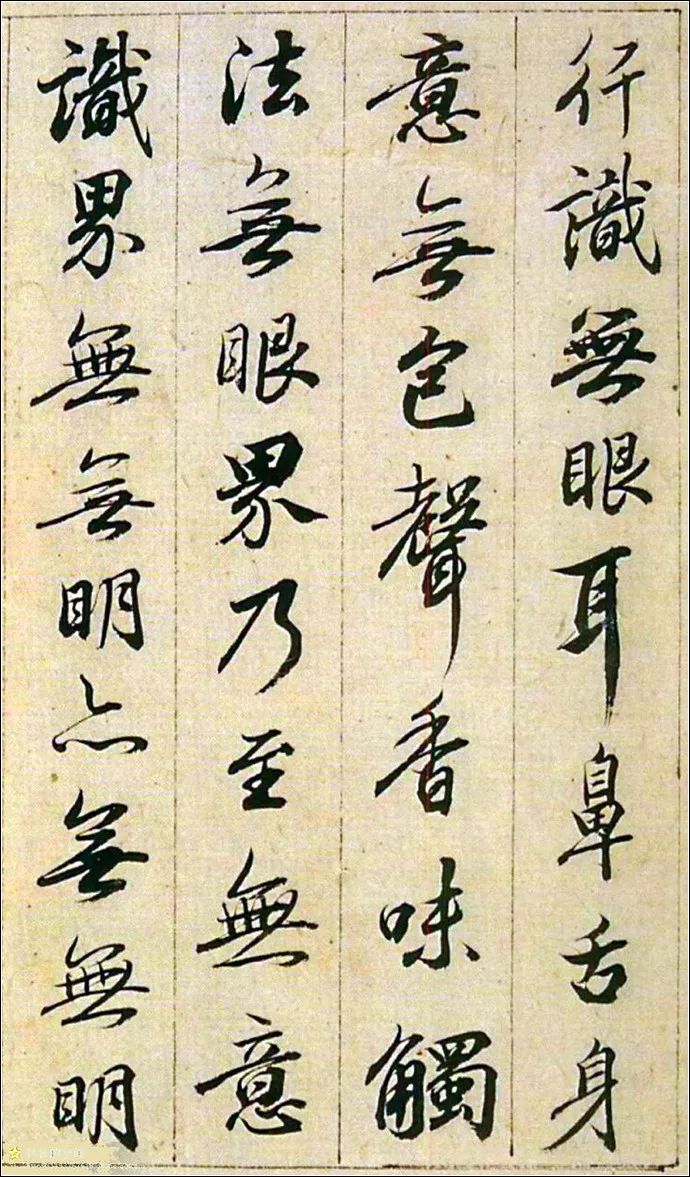 行識無眼耳鼻舌身
意無色聲香味觸
法無眼界乃至無意
識界無無明亦無無明